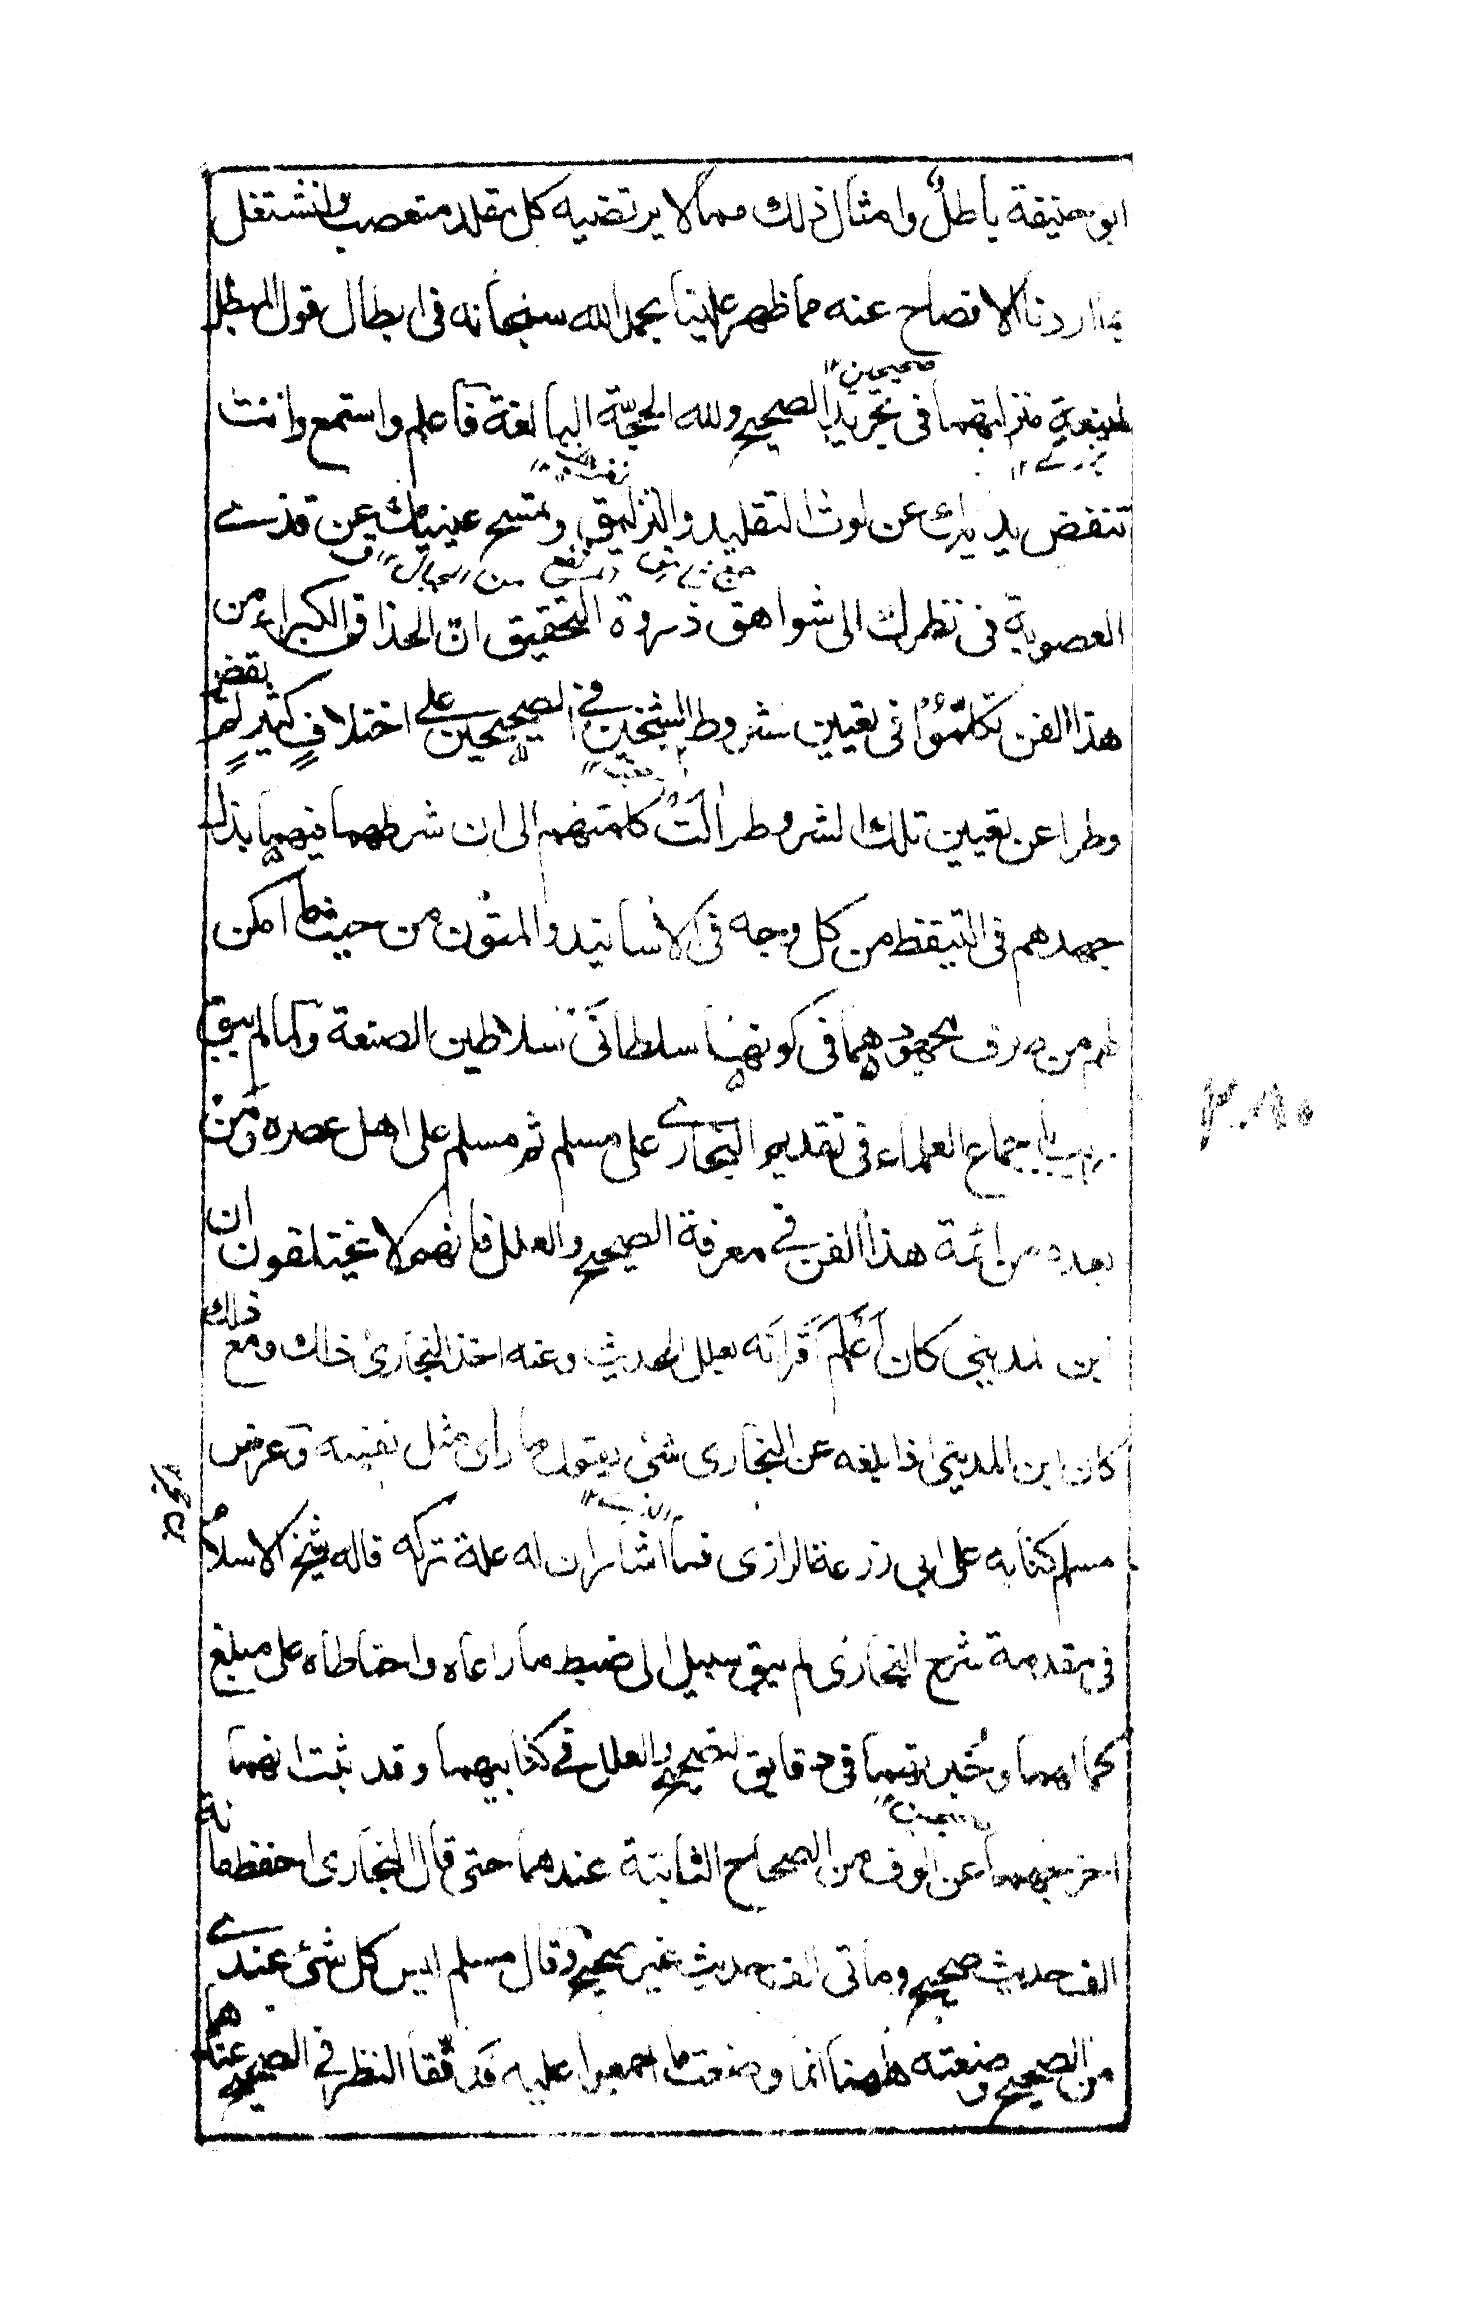 ابو حنيفة باطلٌ وامثال ذلك مما لا يرتضيه كل مقلد متعصب ولنشتغل
بما اردنا الافصاح عنه مما ظهر علينا بحمد الله سبحانه فى ابطال قول المبطل
صحيحين ١٢
لمنيعة منزلتهما فى تجريد الصحيح ولله الحجّة البالغة فاعلم واستمع وانت
تنفض يديك عن لوث التقليد والتزليق وتمسح عينيك عن قذى
العصوبية فى نظرك الى شواهق ذروة التحقيق انّ الحذاق الكبراء من
هذا الفن تكلّموا فى تعيين شروط الشيخين فى الصحيحين على اختلافٍ كثيرٍ لهم بقض
وطرا عن تعيين تلك الشروط والت كلمتهم الى ان شرطهما فيهما بذل
جهدهم فى التيقظ من كل وجه فى الاسانيد والمتون من حيث ما امكن
لهم من صرف مجهودهما فى كونهما سلطانَى سلاطين الصنعة ولما لم يبق
باجماع العلماء فى تقديم البخارى على مسلم ثم مسلم على اهل عصره ومن
بعده من ائمة هذا الفن فى معرفة الصحيح والعلل فانهم لا يختلقون ان
ابن المدينى كان اَعْلَمَ اَقرانه بعلل الحديث وعنه اخذ البخارى ذلك ومع ذلك
كان ابن المدينى اذا بلغه عن البخارى شئ يقول ما راى مثل نفسه وعرض
مسلم كتابه على ابى زرعة الرازى فما اشار ان له علة تركه قاله شيخ الاسلام
فى مقدمة شرح البخارى لم يبق سبيل الى ضبط ما راعاه واحتاطاه على مبلغ
كمالهما وخُبريتهما فى دقايق الصحيح والعلل فى كتابيهما وقد ثبت انهما
اخرجهما عن الوف من الصحاح الثابتة عندهما حتى قال البخارى احفظ مائة
الف حديث صحيح وماتى الف حديث غير صحيح وقال مسلم ليس كل شئ عندى
من الصحيح وضعته ههنا انما وضعت ما اجمعوا عليه فدقّقا النظر فى الصحيح عندهما